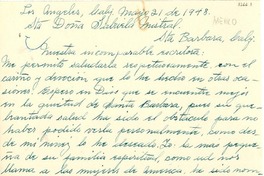 Los Angeles, Calif. Mayo 21 de 1948.
Sta Doña Gabriela Mistral.
Sta Barbara, Calif.
Nuestra incomparable escritora:
Me permito saludarla respetuosamente, con el
cariño y devoción que lo he hecho en otras oca
siones. Espero en Dios que se encuentre mejor
en la quietud de Santa Barbara, pues su que
brantada salud ha sido el obstáculo para no
haber podido verla presonalmente, como des
de mi lo he deseado. La mas peque
ña de su familia espiritual, como ud nos
llama a las mujeres de America, la